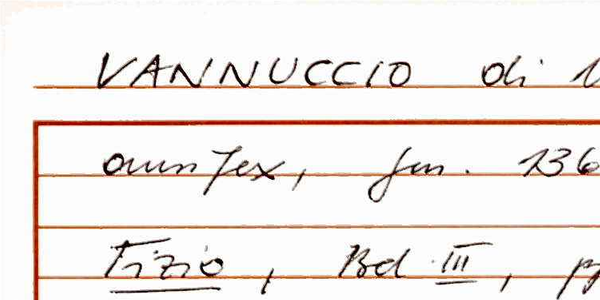 VANNUCCIO di
aurifex, gen. 136
Tizio, Bd. III, p